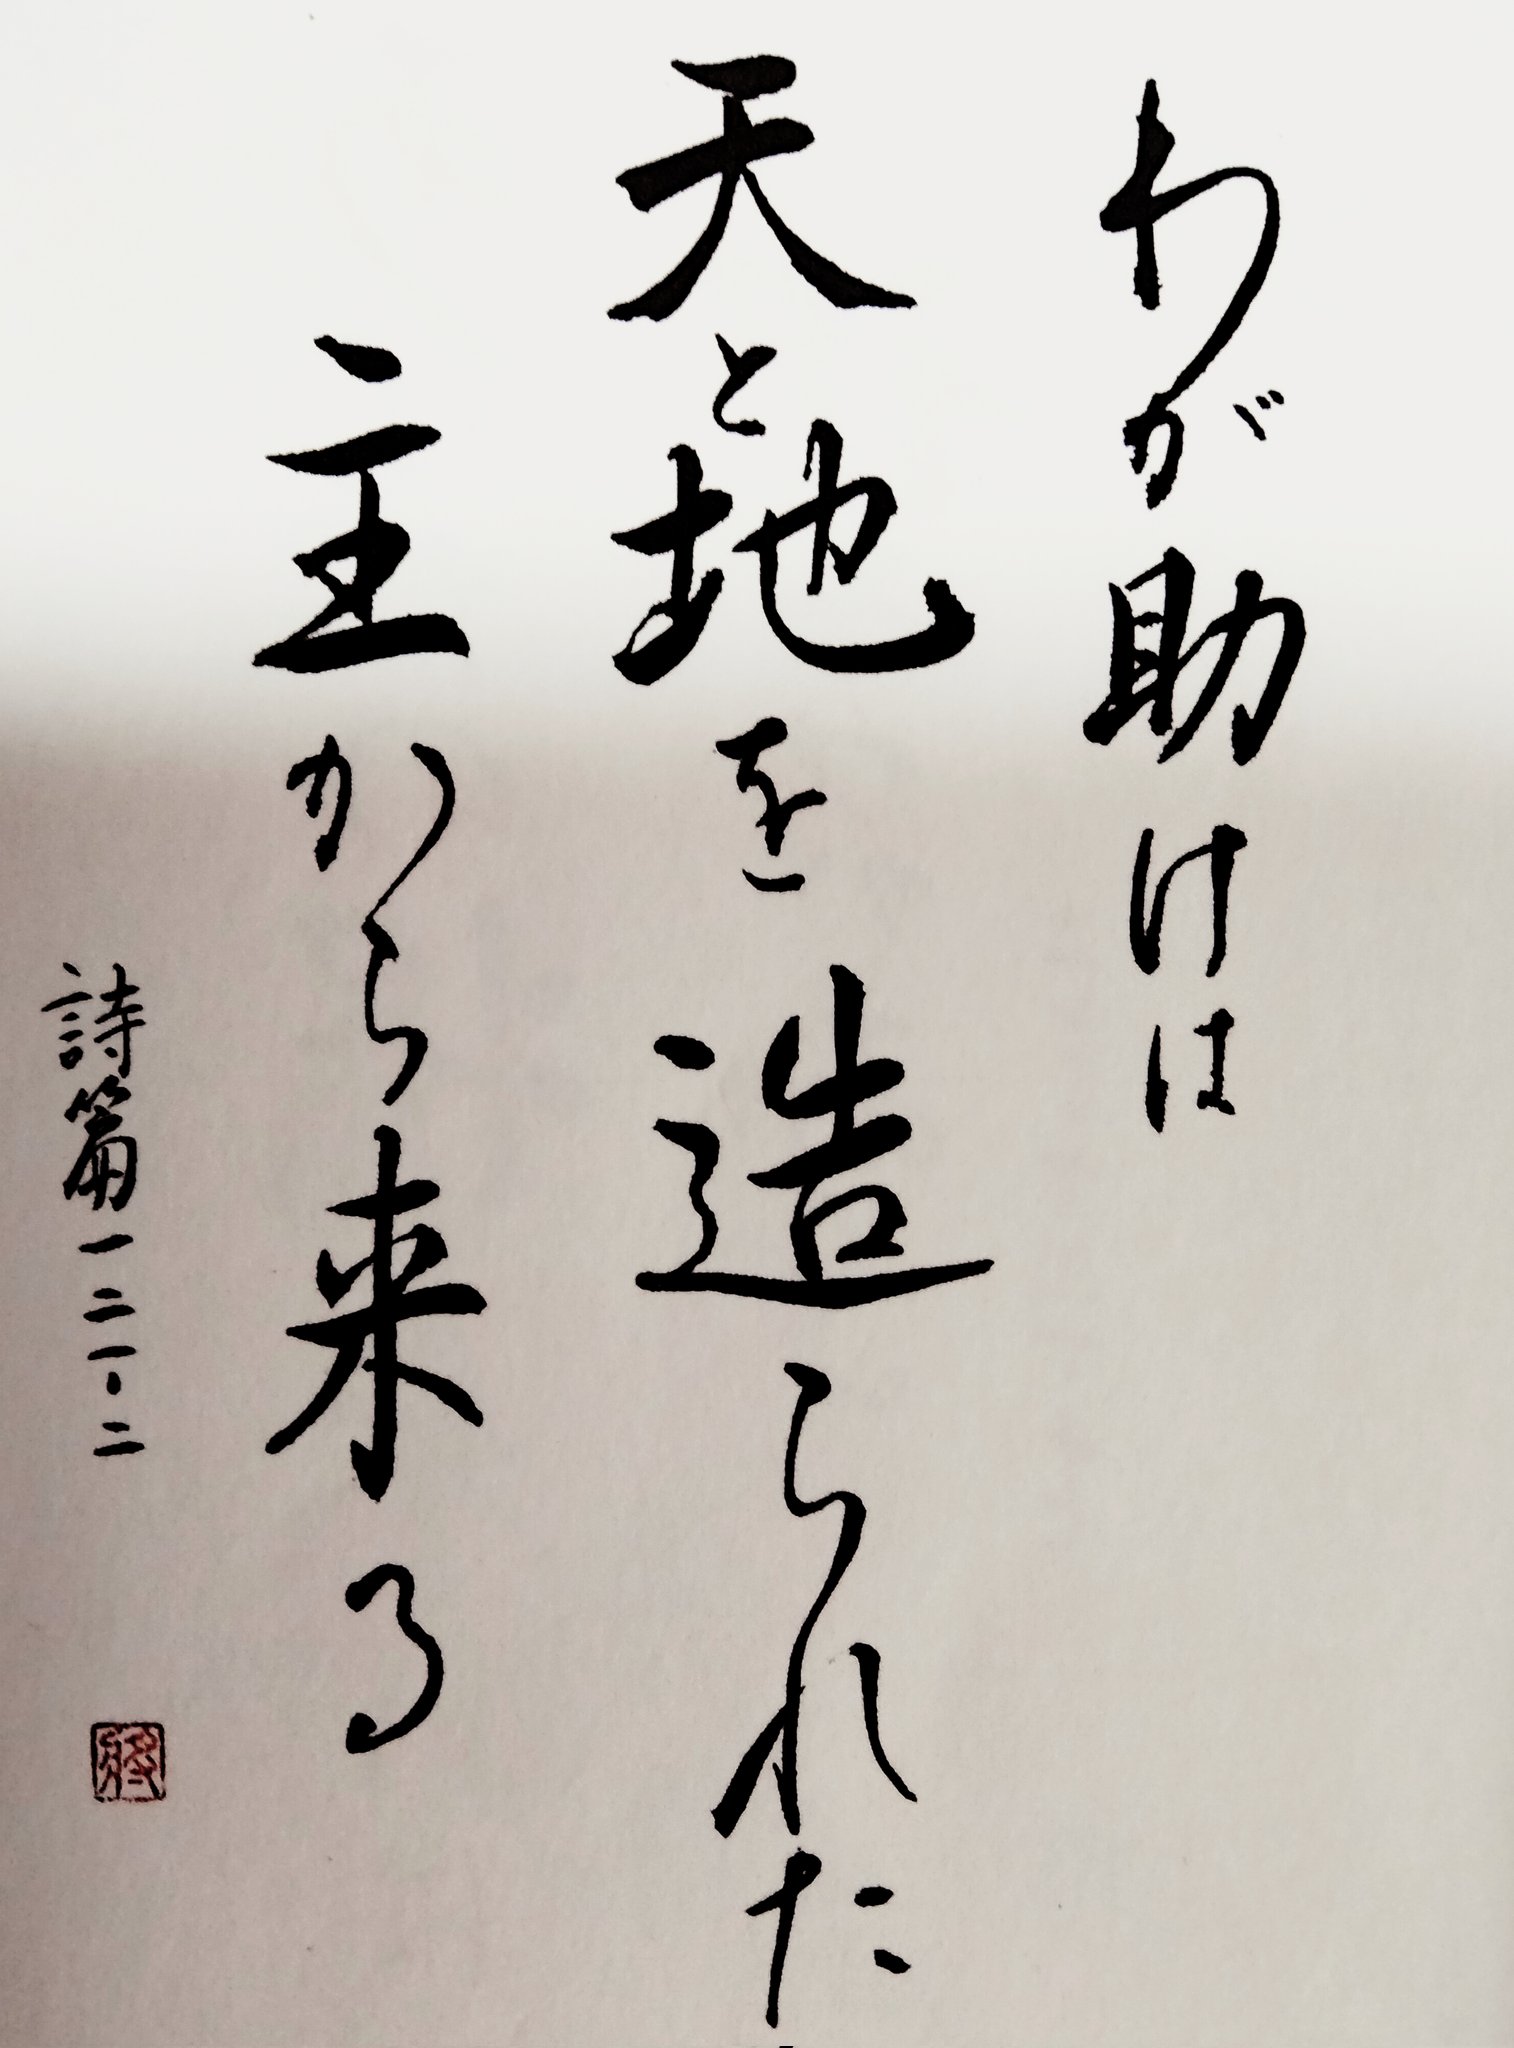 わが助けは
天と地を造られた
主から来る
詩篇一二一・二